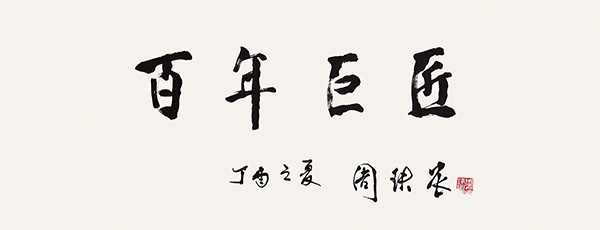 百年巨匠
丁酉之夏 周